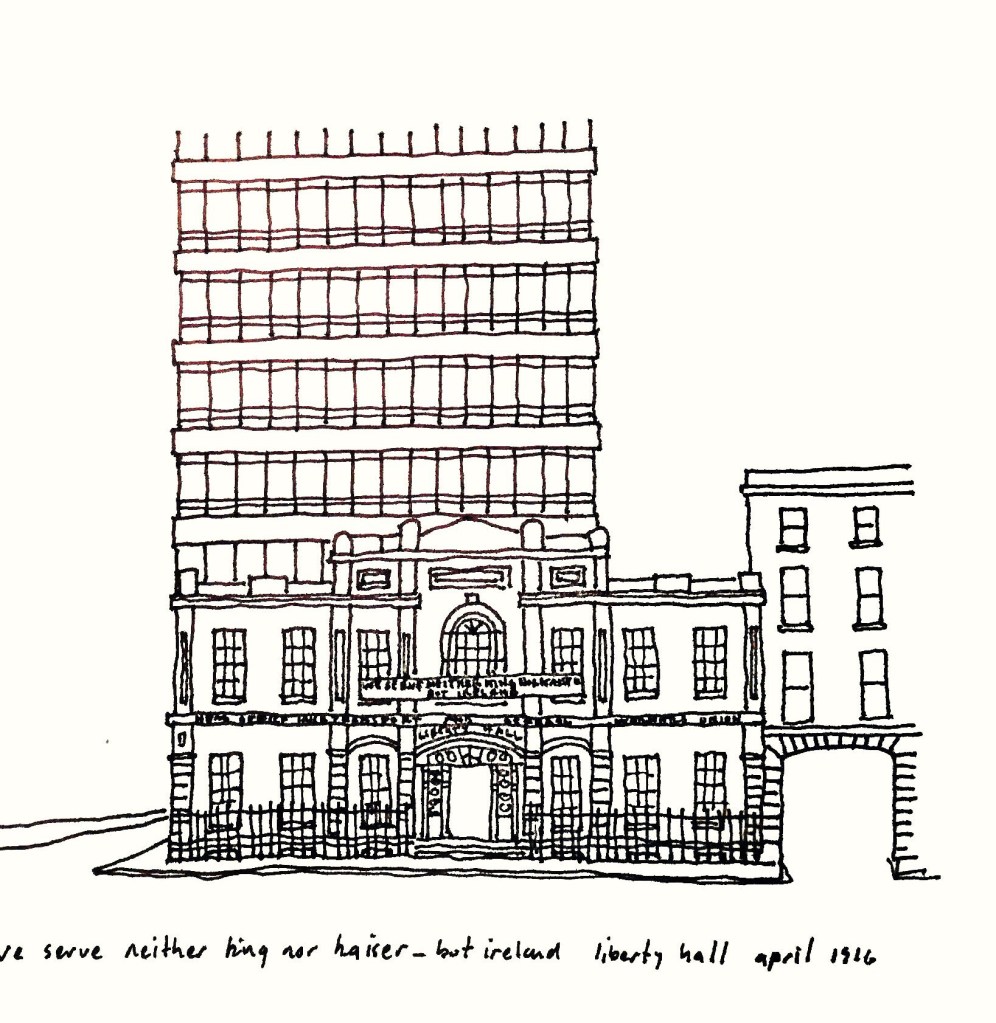 WE SERVE NEITHER KING NOR KAISER
BUT IRELAND
HEAD OFFICE IRISH TRANSPORT AND GENERAL WORKERS UNION
LIBERTY HALL
we serve neither king nor kaiser - but ireland liberty hall april 1916